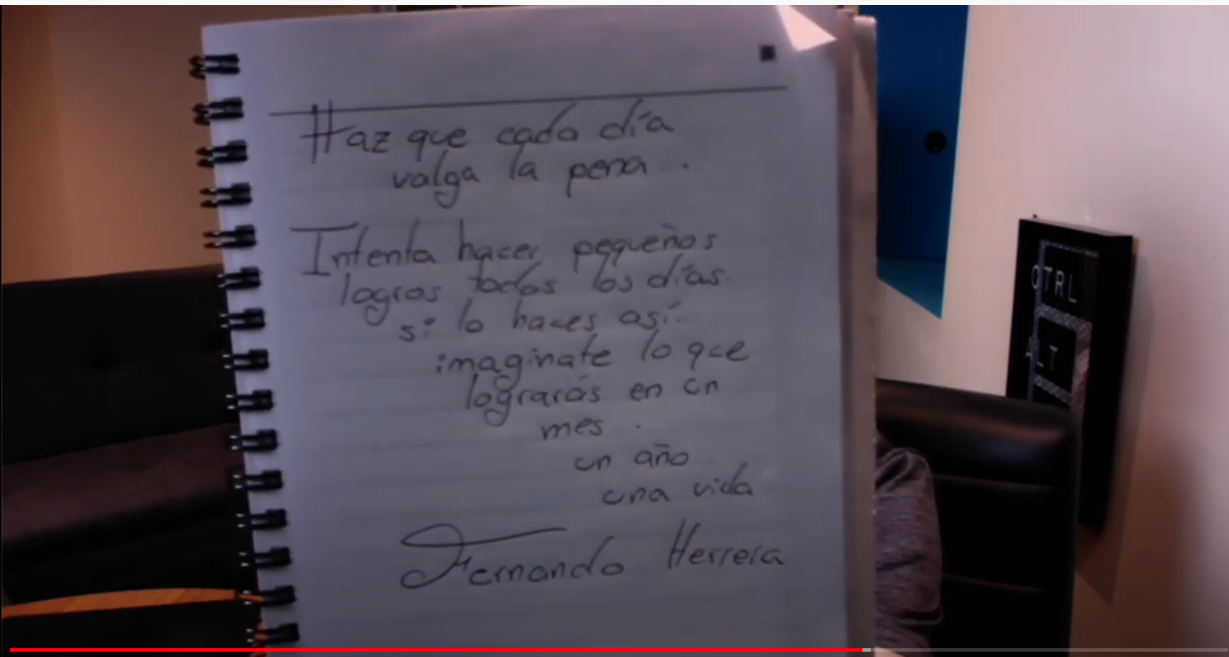 Haz que cada día
valga la pena.
Intenta hacer pequeños
logros todos los días.
si lo haces así...
imaginate lo que
lograrás en un
mes.
un año..
una vida
Fernando Herrera
CTRL
ALT